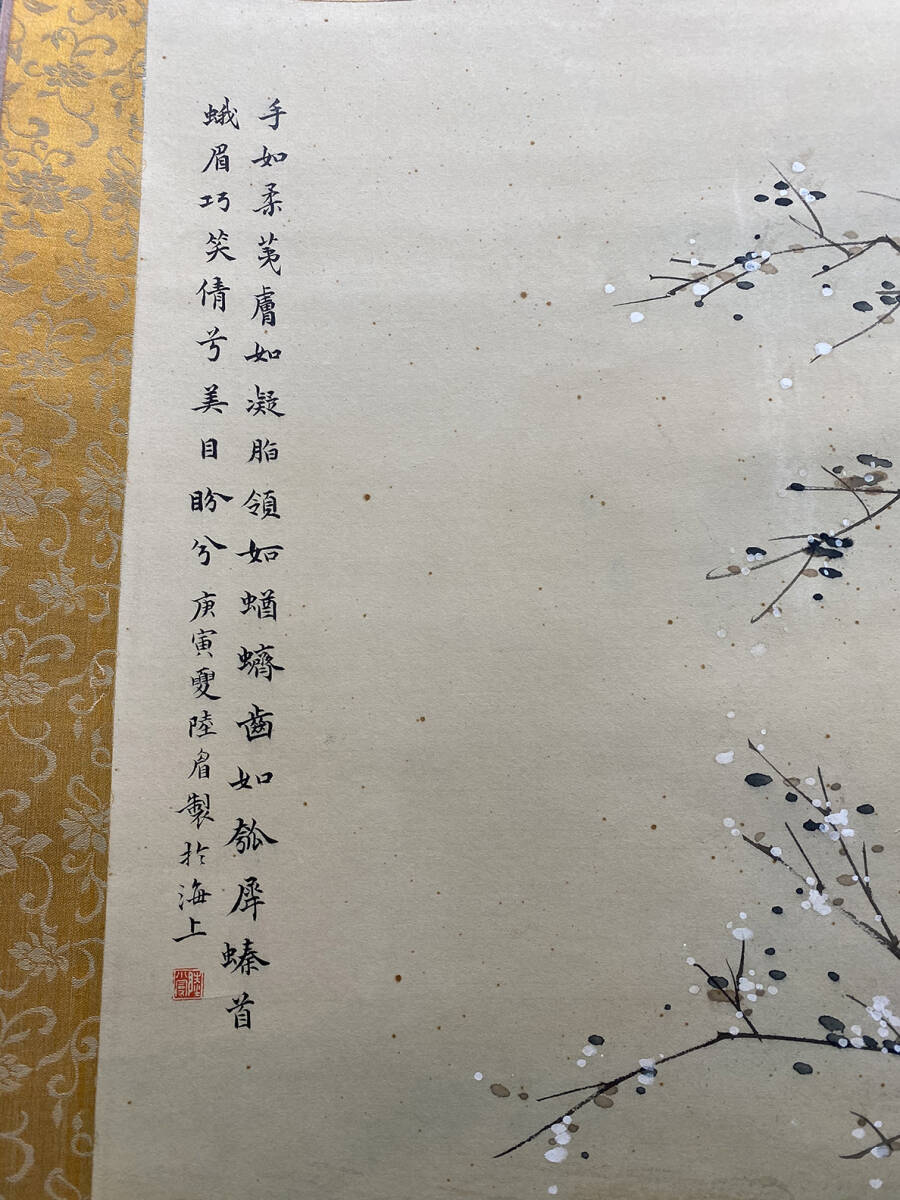 手如柔荑膚如凝脂領如蝤蠐齒如瓠犀螓首
蛾眉巧笑倩兮美目盼兮庚寅夏陸眉製於海上